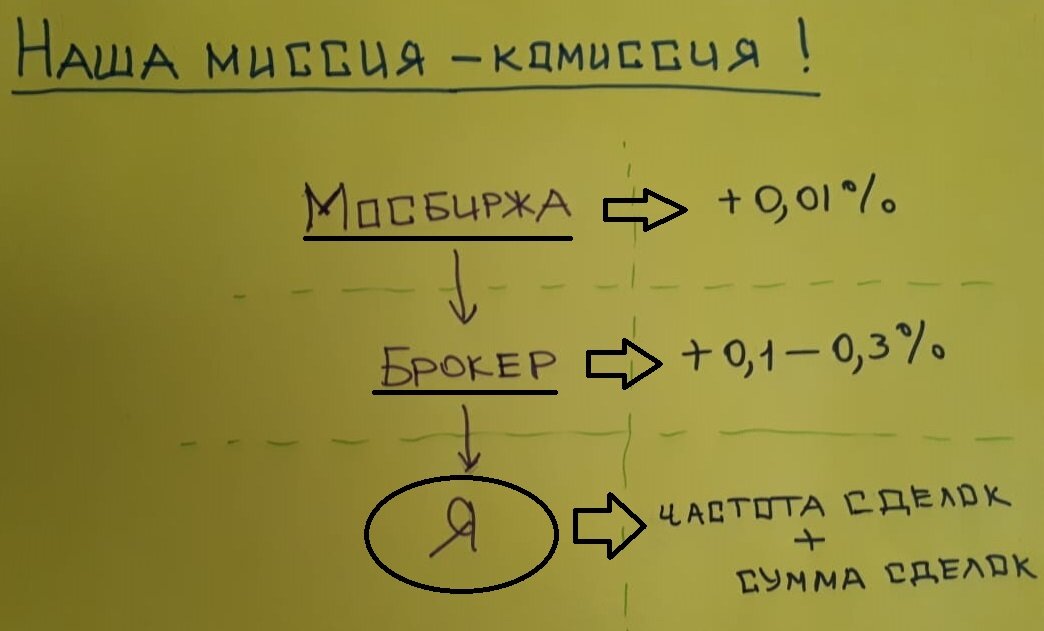 НАША МИССИЯ – КОМИССИЯ!
МОСБИРЖА + 0,01%
БРОКЕР + 0,1 – 0,3%
Я ЧАСТОТА СДЕЛОК
+
СУММА СДЕЛОК